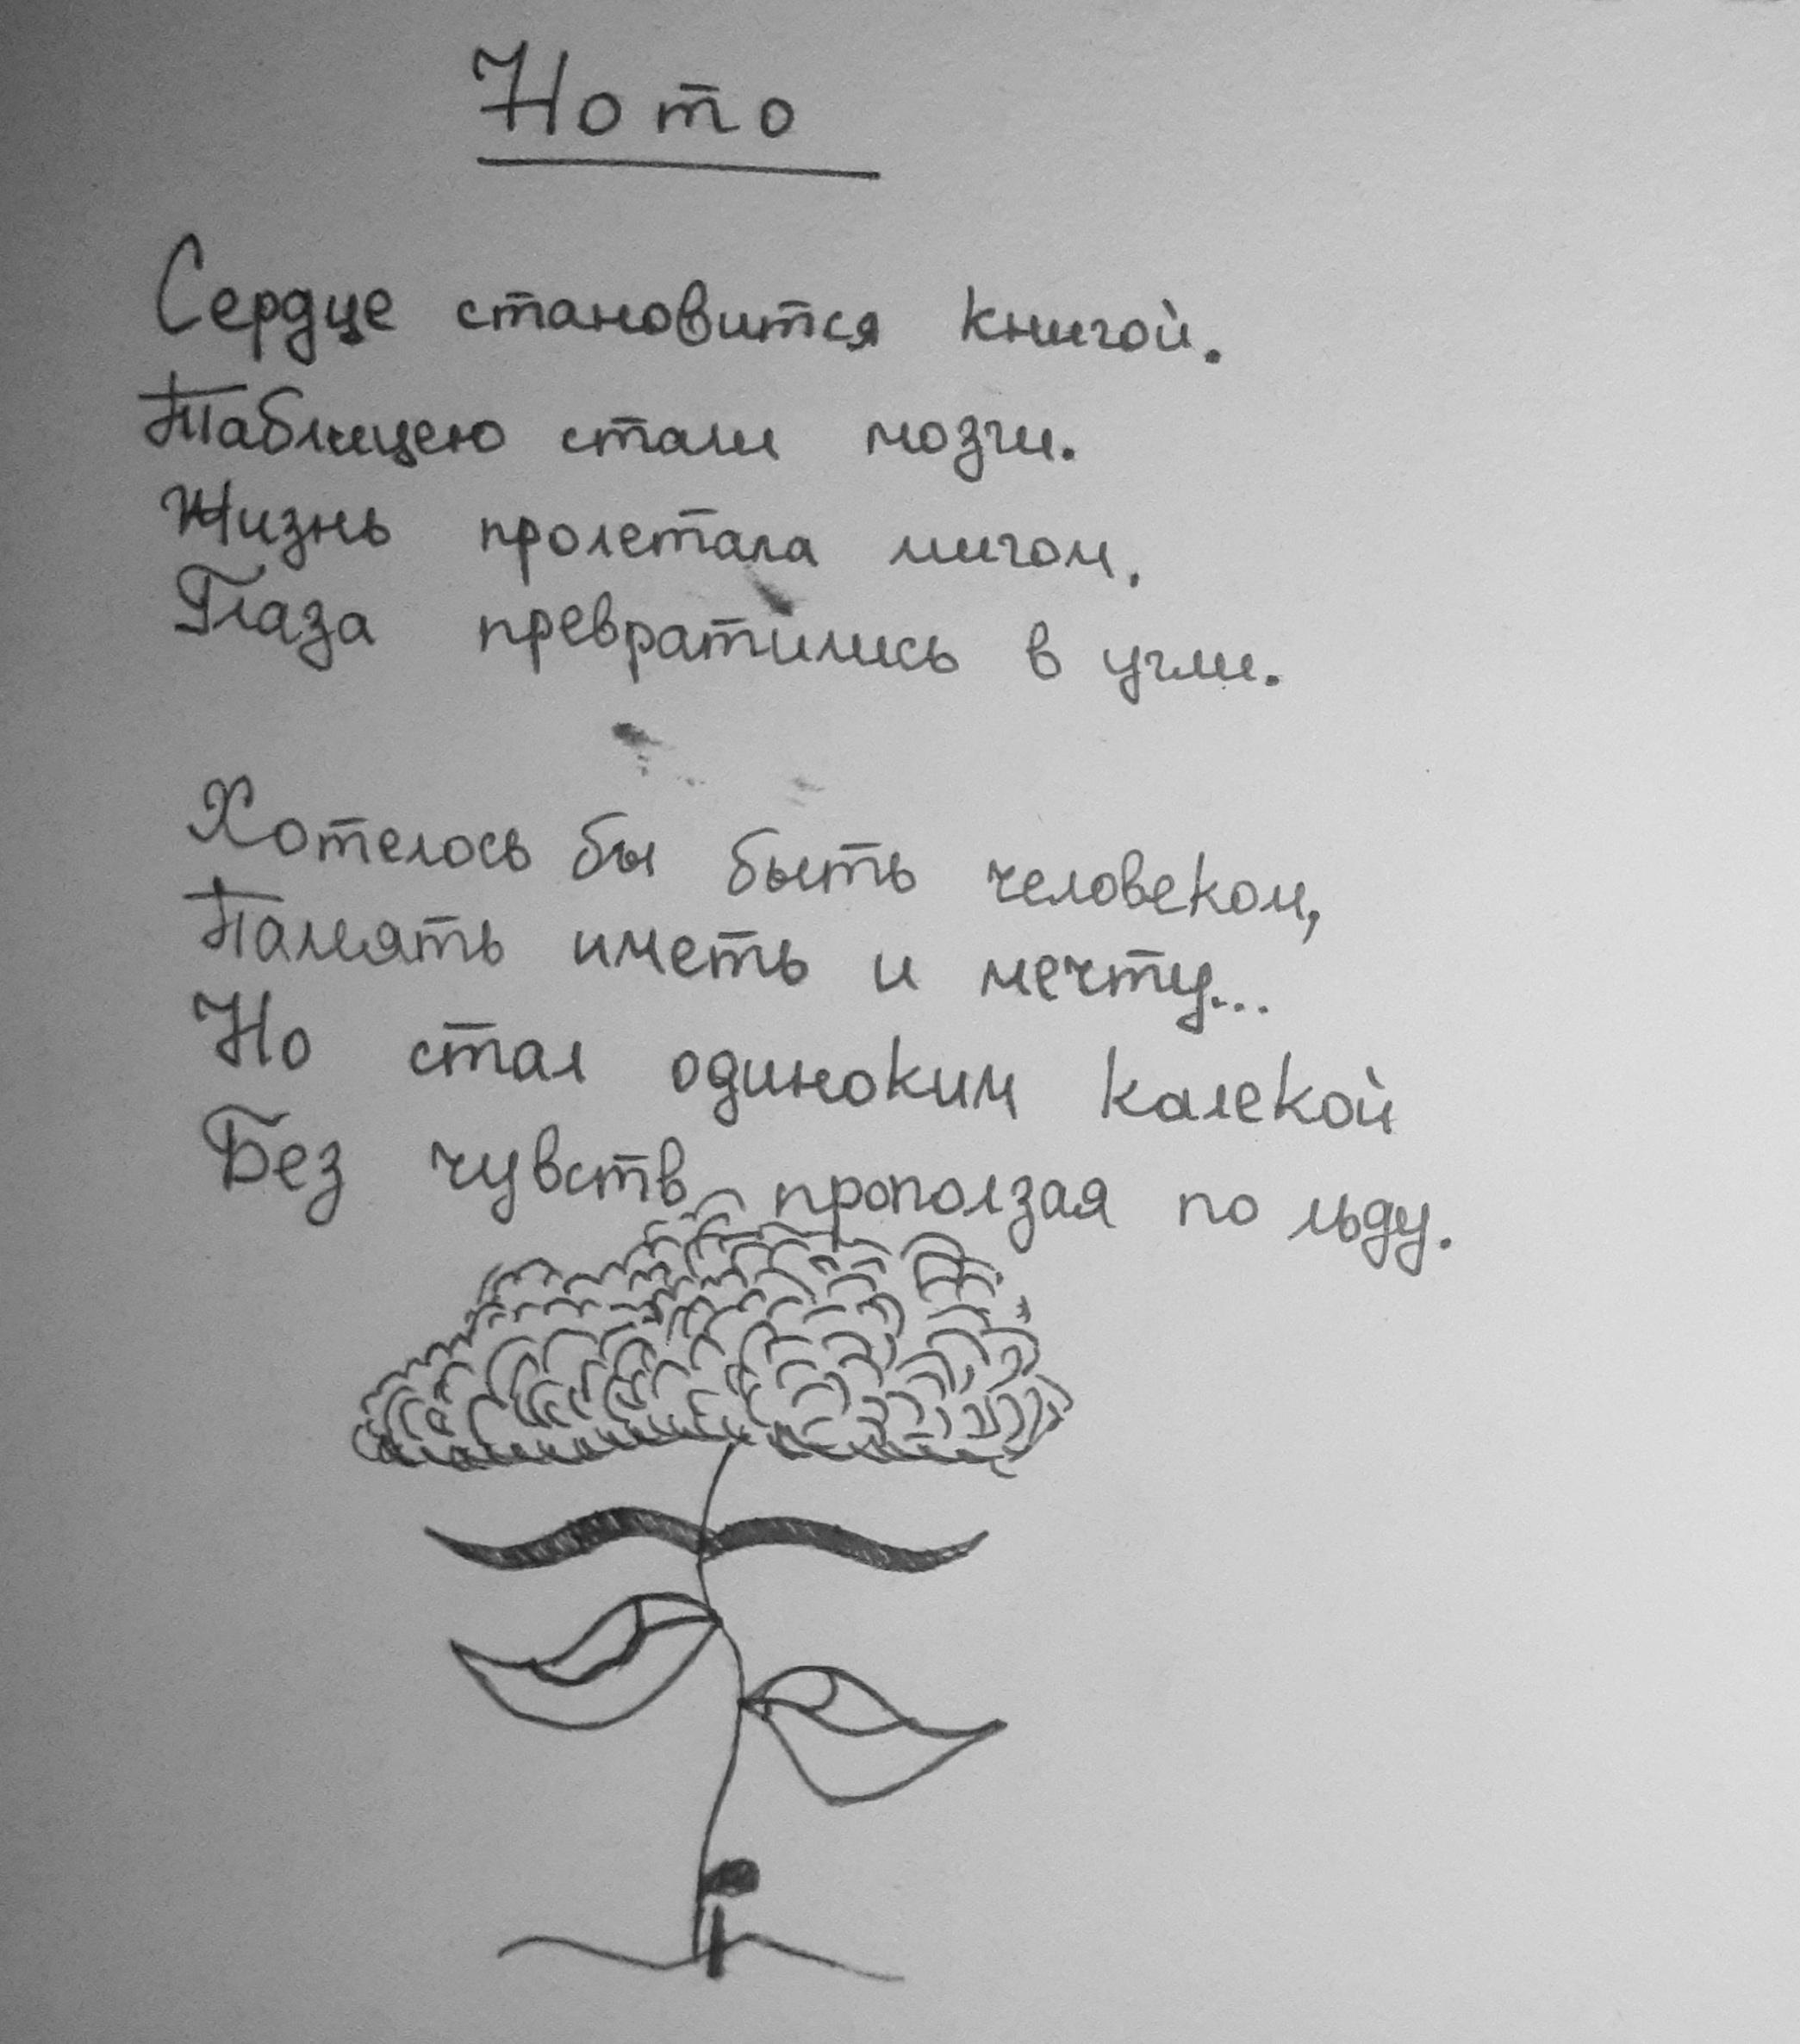 Ното
Сердце становится книгой.
Таблицею стали мозги.
Жизнь пролетала мигом.
Глаза превратились в угли.
Хотелось бы быть человеком,
Память иметь и мечту...
Но стал одиноким калекой
Без чувств проползая по льду.